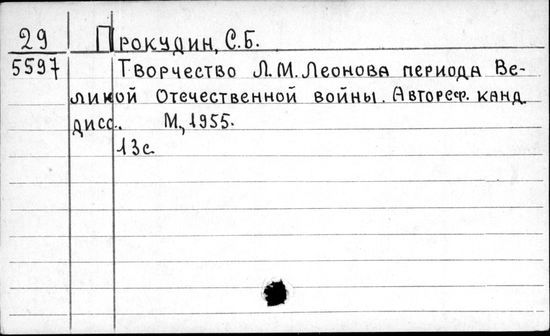 29 Прокудин, С.Б.
5597 Творчество Л.М.Леонова периода Ве-
ликой Отечественной войны. Автореф. канд.
дисс. М., 1955.
13с.